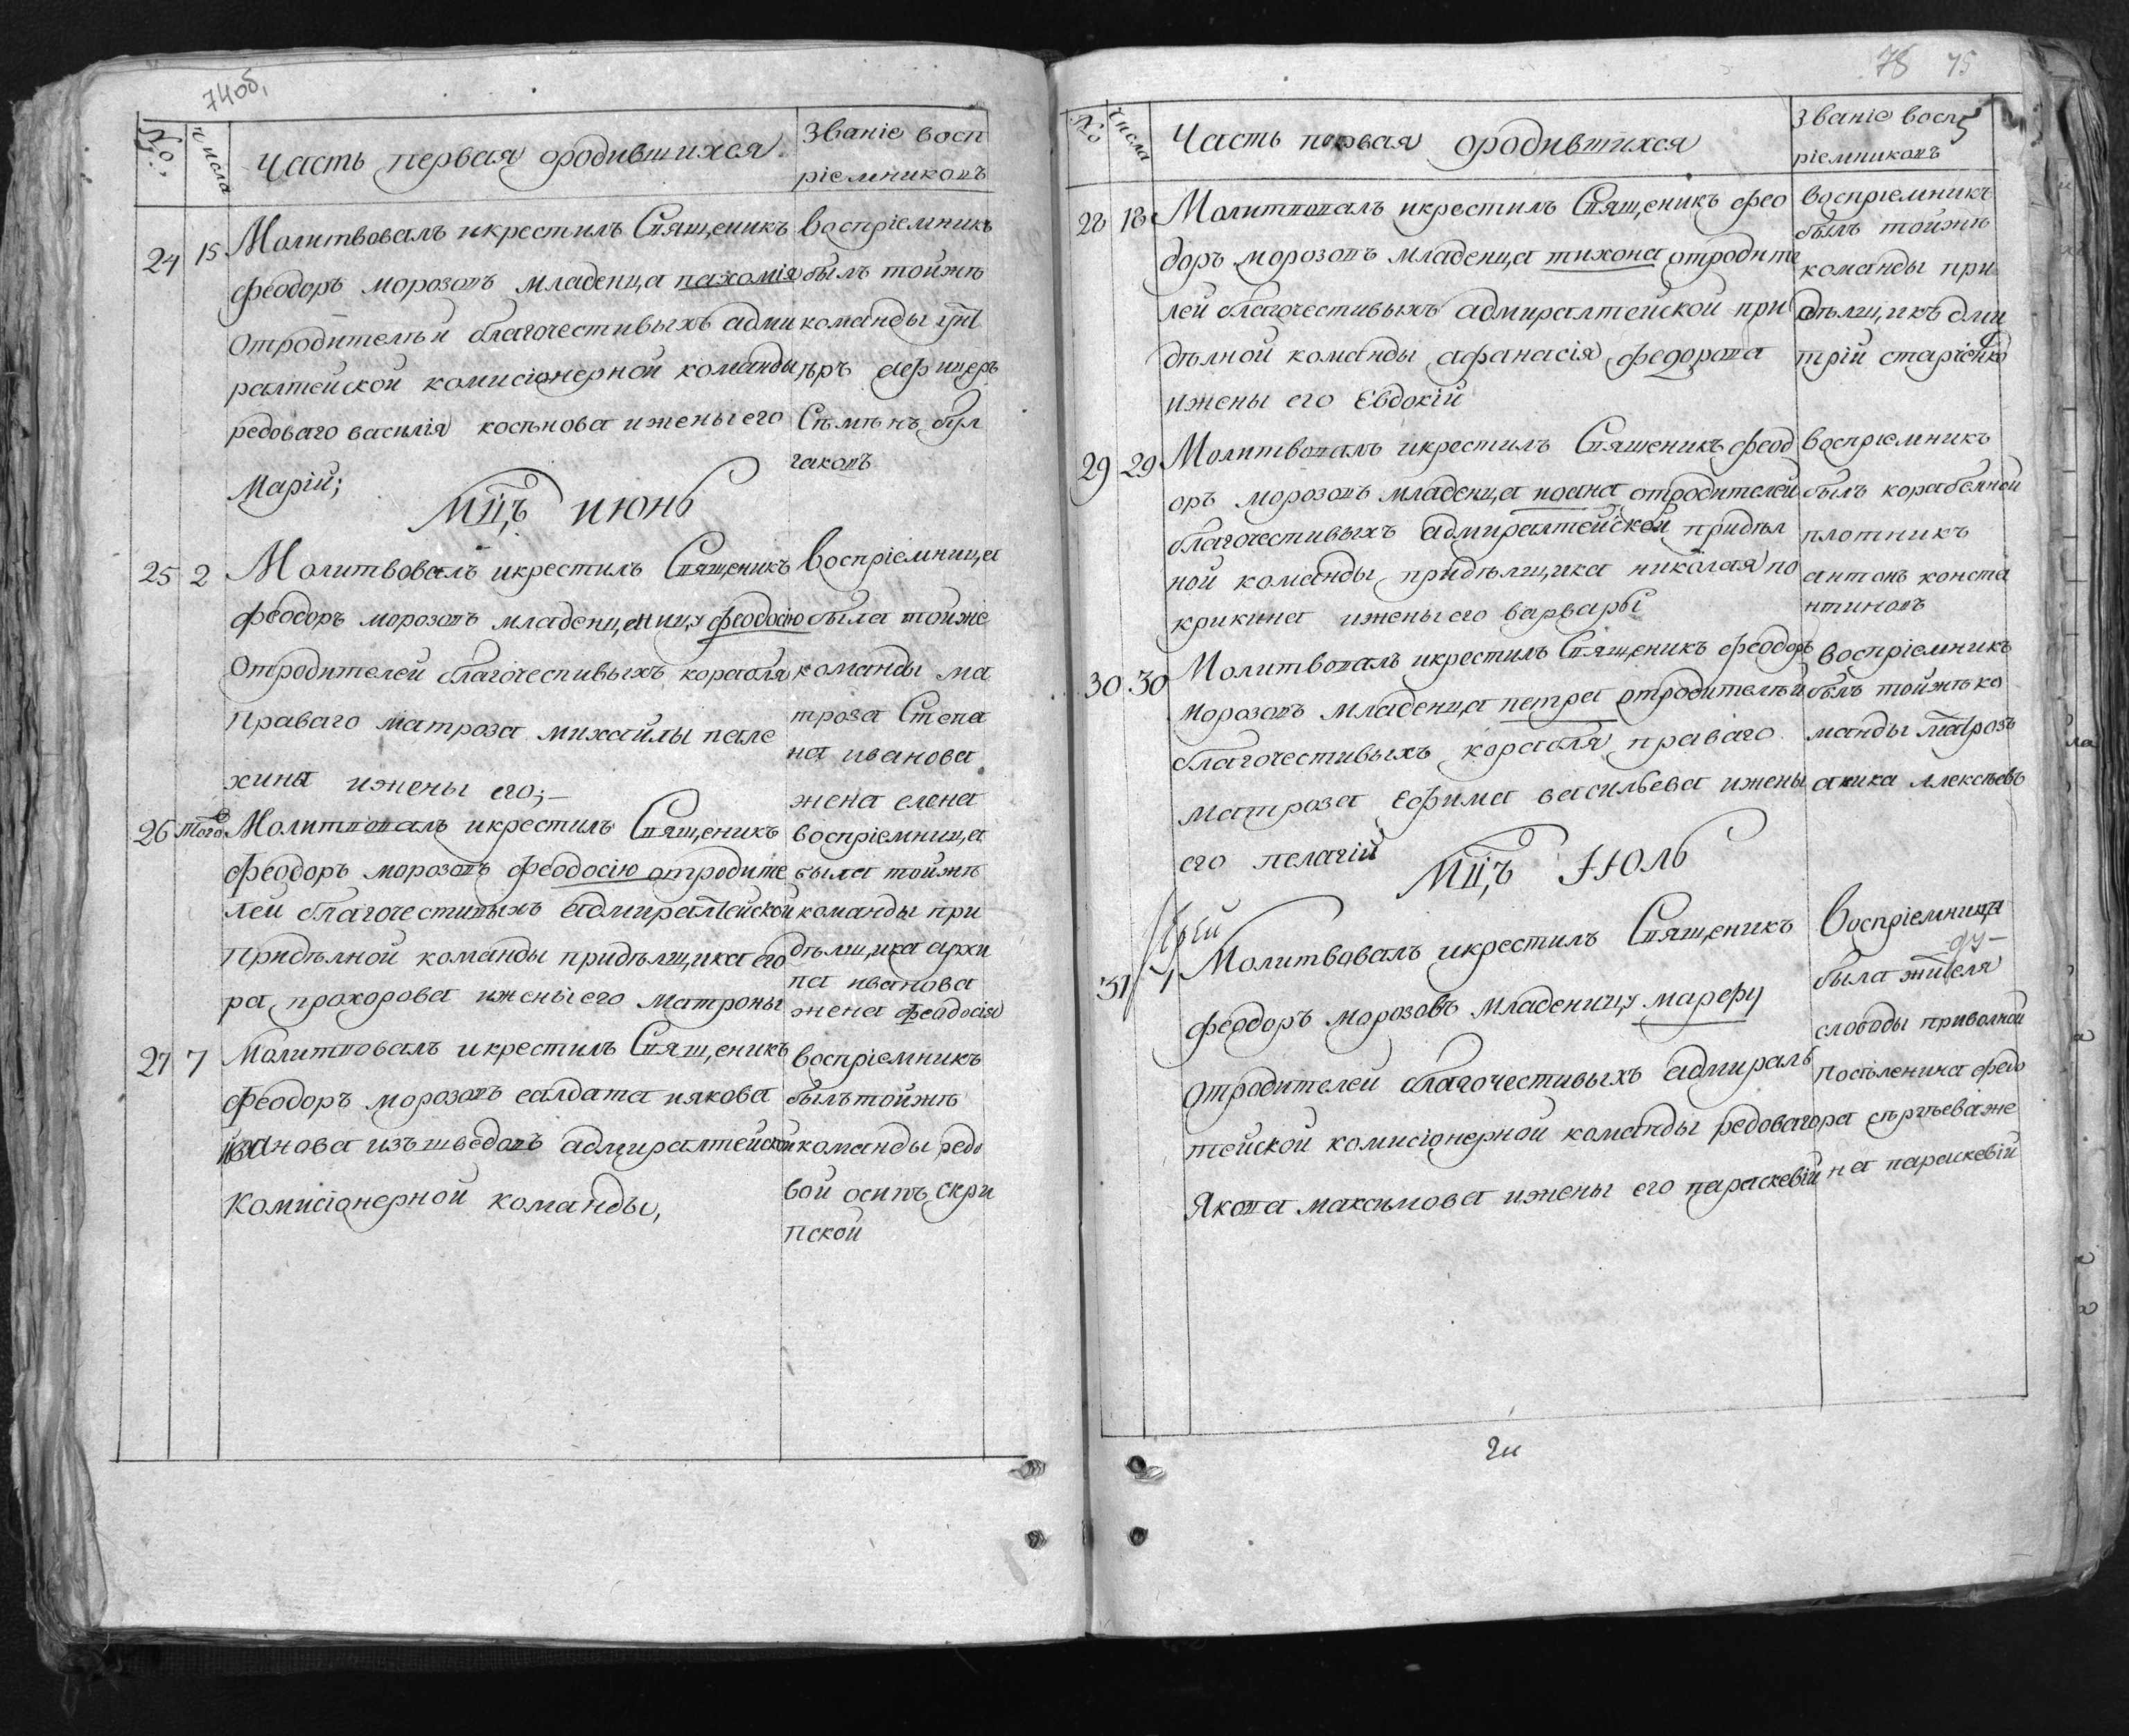 74об,
№: числа Часть первая ородившихся Званіе восп
ріемниковъ
24 15 Молитвовалъ икрестилъ Священикъ
феодоръ морозовъ младенца пахомія
отродителѣй благочестивыхъ адми
ралтейской комисіонерной команды
редоваго василія косѣнова ижены его
Марій;
Воспріемникъ
былъ тойжѣ
команды унт
ѣръ афицеръ
Сѣмѣнъ бул
гаковъ
Мцъ июнь
25 2 Молитвовалъ икрестилъ Священикъ
феодоръ морозовъ младеницу феодосію
отродителей благочестивыхъ корабля
праваго матроза михайлы пеле
хина ижены его;
Воспріемница
была тойже
команды ма
троза Степа
на иванова
жена елена
26 того Молитвовалъ икрестилъ Священикъ
феодоръ морозовъ феодосію отродите
лей благочестивыхъ адмиралтейской
придѣлной команды придѣлщика его
ра прохорова ижены его матроны
воспріемница
была тойжѣ
команды при
дѣлщика архи
па иванова
жена феодосія
27 7 Молитвовалъ икрестилъ Священикъ
феодоръ морозовъ салдата иякова
иванова изъ шведовъ адмиралтейской
комисіонерной команды,
воспріемникъ
былъ тойжѣ
команды редо
вой осипъ скри
пской
75
№ числа Часть первая ородившихся Званіе восп
ріемниковъ
28 18 Молитвовалъ икрестилъ Священикъ фео
доръ морозовъ младенца тихона отродите
лей благочестивыхъ адмиралтейской при
дѣлной команды афанасія федорова
ижены его Евдокій
воспріемникъ
былъ тойжѣ
команды при
дѣлщикъ дми
трій старченко
29 29 Молитвовалъ икрестилъ Священикъ феод
оръ морозовъ младенца иоана отродителей
благочестивыхъ адмиралтейской придѣл
ной команды придѣлщика николая по
крикина ижены его варвары
воспріемникъ
былъ корабелной
плотникъ
антонъ конста
нтиновъ
30 30 Молитвовалъ икрестилъ Священикъ феодоръ
морозовъ младенца петра отродителѣй
благочестивыхъ корабля праваго
матроза Ефима васильева ижены
его пелагій
воспріемникъ
былъ тойжѣ ко
манды матрозъ
аника алексѣевъ
Мцъ Июль
31 1 Молитвовалъ икрестилъ Священикъ
феодоръ морозовъ младеницу марефу
отродителей благочестивыхъ адмираль
тейской комисіонерной команды редоваго
Якова максимова ижены его параскевій
Воспріемница
была жителя
слободы приволной
посѣленина федо
ра сѣргѣева же
на параскевій